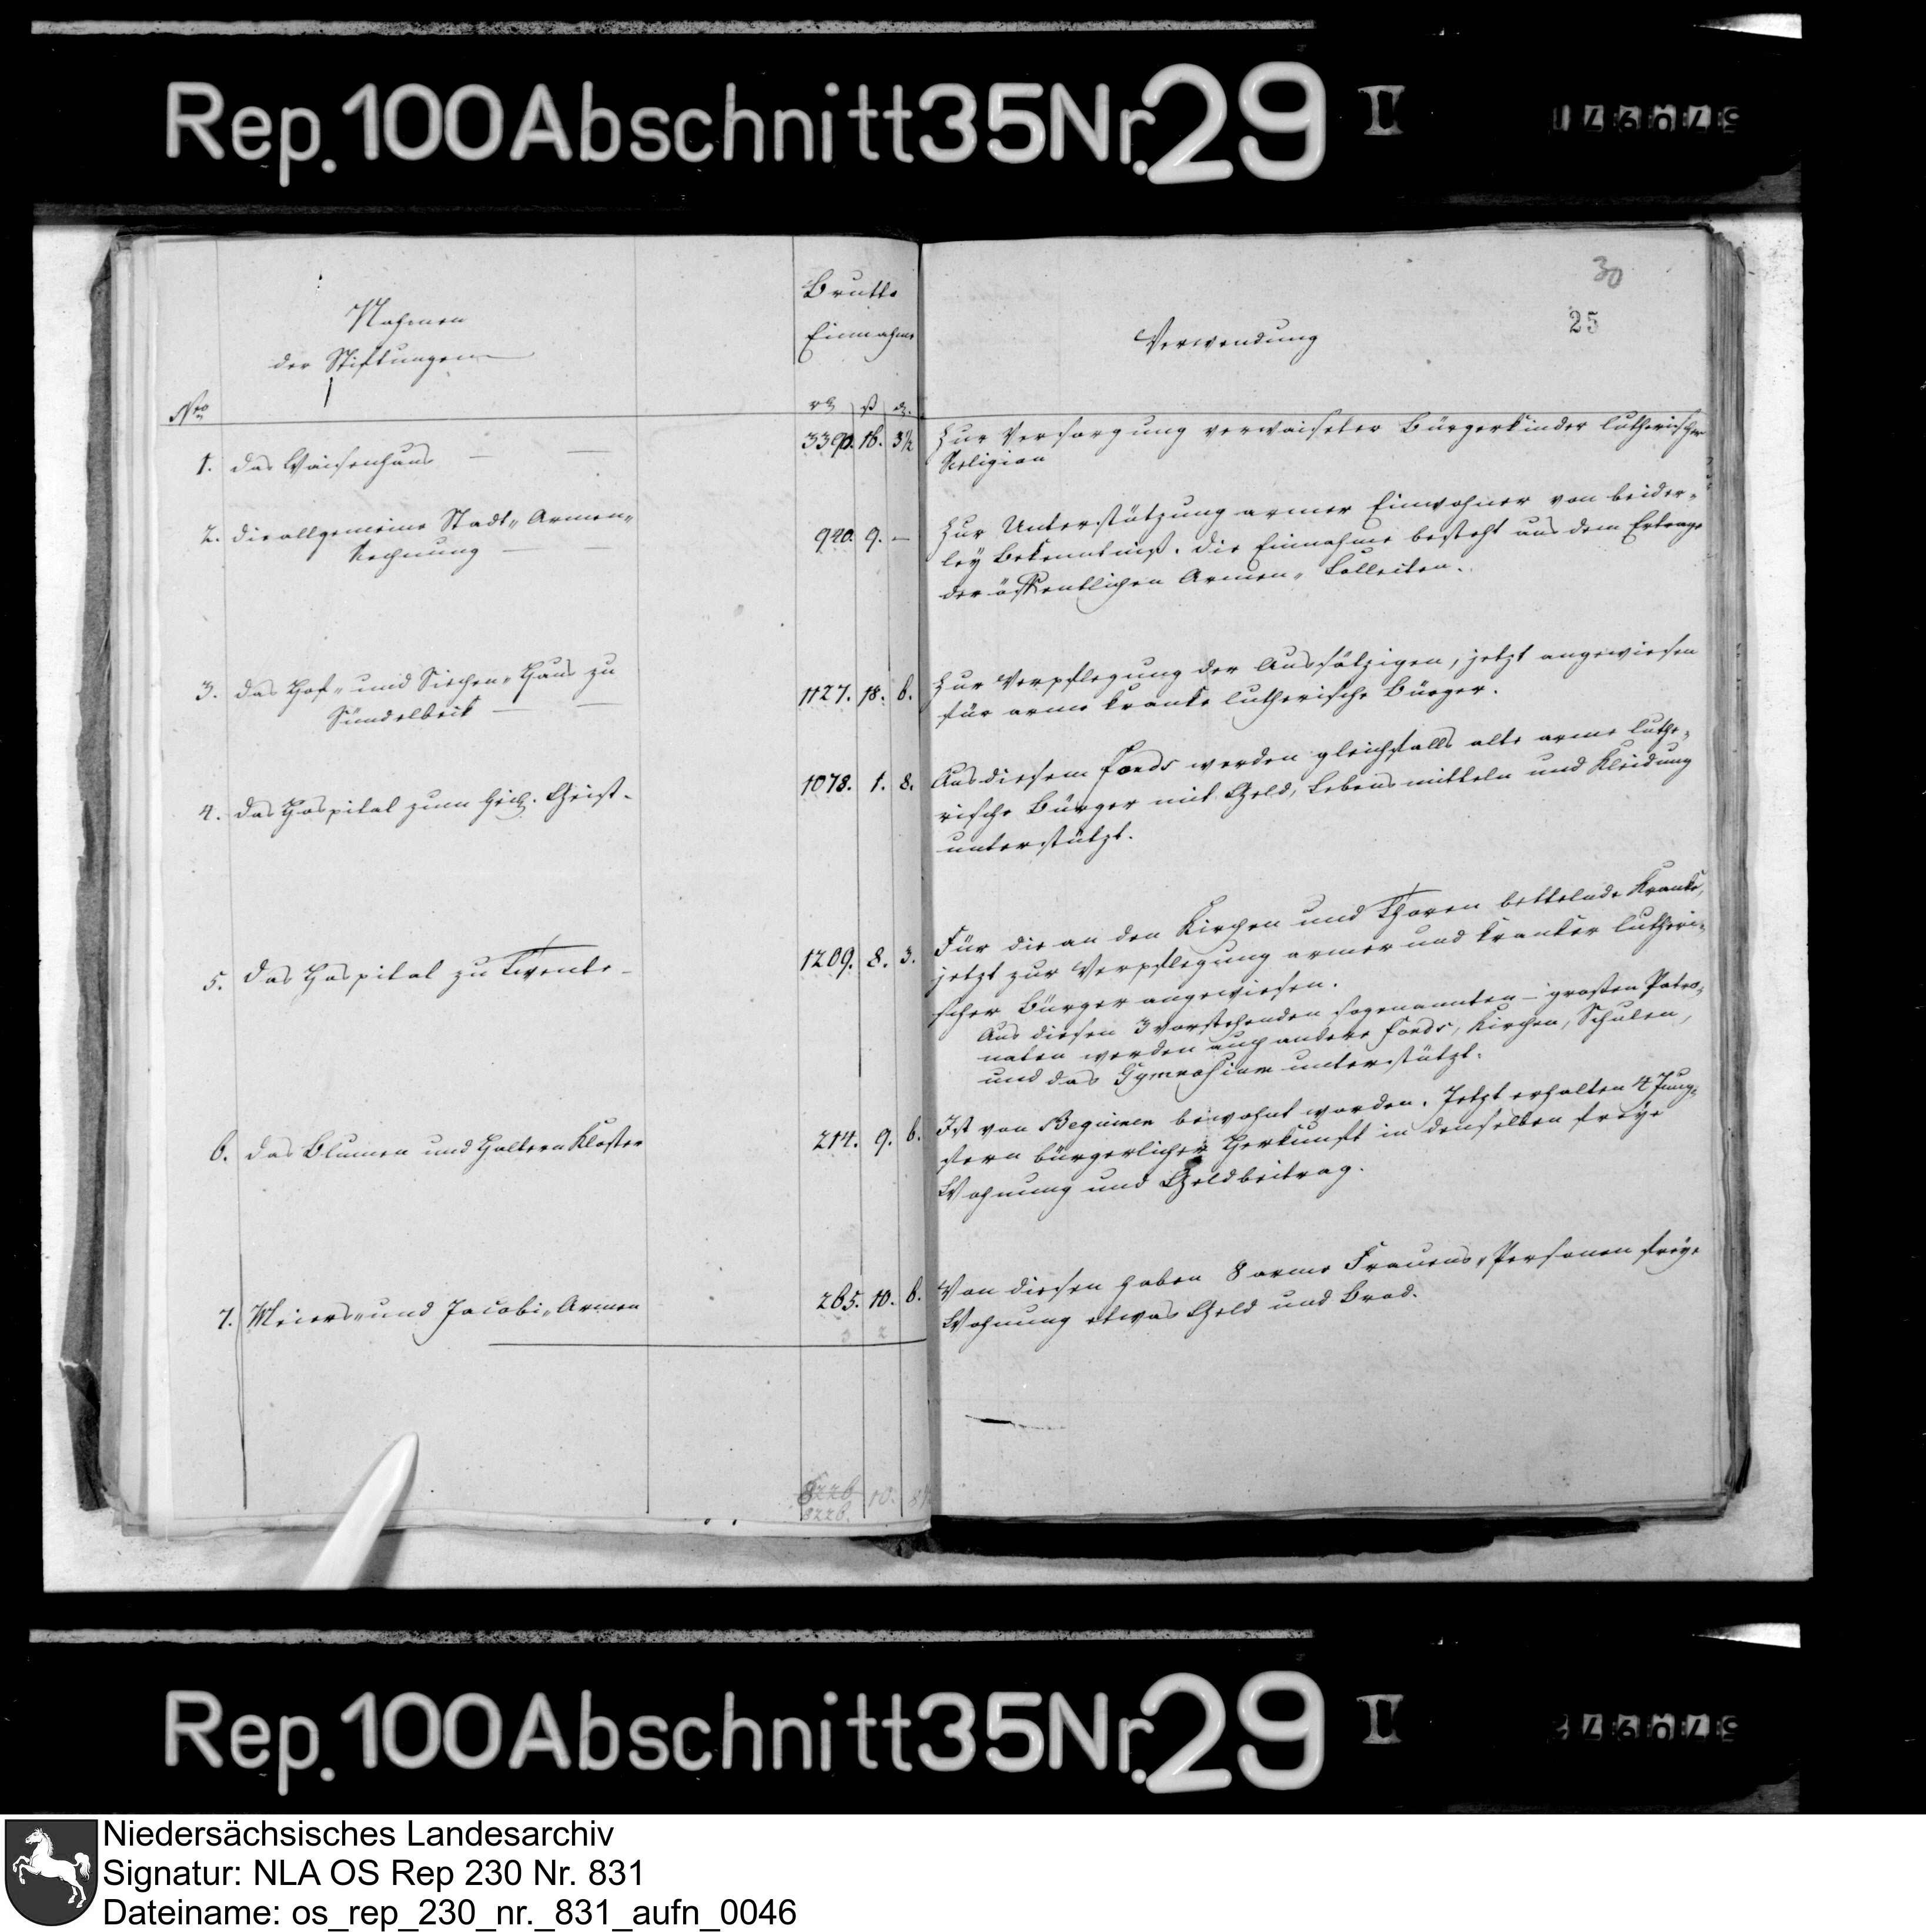 Rep.100Abschnitt35Nr.29 II
30
25
Nahmen
der Stiftungen
Brutto
Einnahme
Verwendung
Nro
rt ß d.
1. das Waisenhaus — —
3390. 16. 3½
Zur Versorgung verwaiseter Bürgerkinder lutherischer
Religion
2. die allgemeine Stadt- Armen-
Rechnung — —
920. 9. —
Zur Unterstützung armer Einwohner von beider-
ley Bekenntniß. die Einnahme besteht aus dem Ertrage
der öffentlichen Armen- Collecten.
3. das Hof- und Siechen- Haus zu
Sündelbeik — —
1127. 18. 6.
Zur Verpflegung der Aussätzigen, jetzt angewiesen
für arme kranke lutherische Bürger.
4. das Hospital zum heil. Geist-
1078. 1. 8.
Aus diesem Fonds werden gleichfalls alte arme luthe-
rische Bürger mit Geld, Lebensmitteln und Kleidung
unterstützt.
5. das Hospital zu Twente-
1209. 8. 3.
Für die an den Kirchen und Thoren bettelnde Kranke,
jetzt zur Verpflegung armer und kranker lutheri-
scher Bürger angewiesen.
Aus diesen 3 vorstehenden sogenannten - großen Patro-
naten werden auch andere Fonds, Kirchen, Schulen,
und das Gymnasium unterstützt.
6. das Blumen und Haltern Kloster
214. 9. 6.
Ist von Beguinen bewohnt worden. Jetzt erhalten 4 Jung-
fern bürgerlicher Herkunft in denselben freye
Wohnung und Geldbeitrag.
7. Meiers- und Jacobi- Armen
265. 10. 6.
Von diesen haben 8 arme Frauens- Personen freye
Wohnung etwas Geld und Brod.
8226 10. 8½
8226.
Rep.100Abschnitt35Nr.29 II
Niedersächsisches Landesarchiv
Signatur: NLA OS Rep 230 Nr. 831
Dateiname: os_rep_230_nr._831_aufn_0046